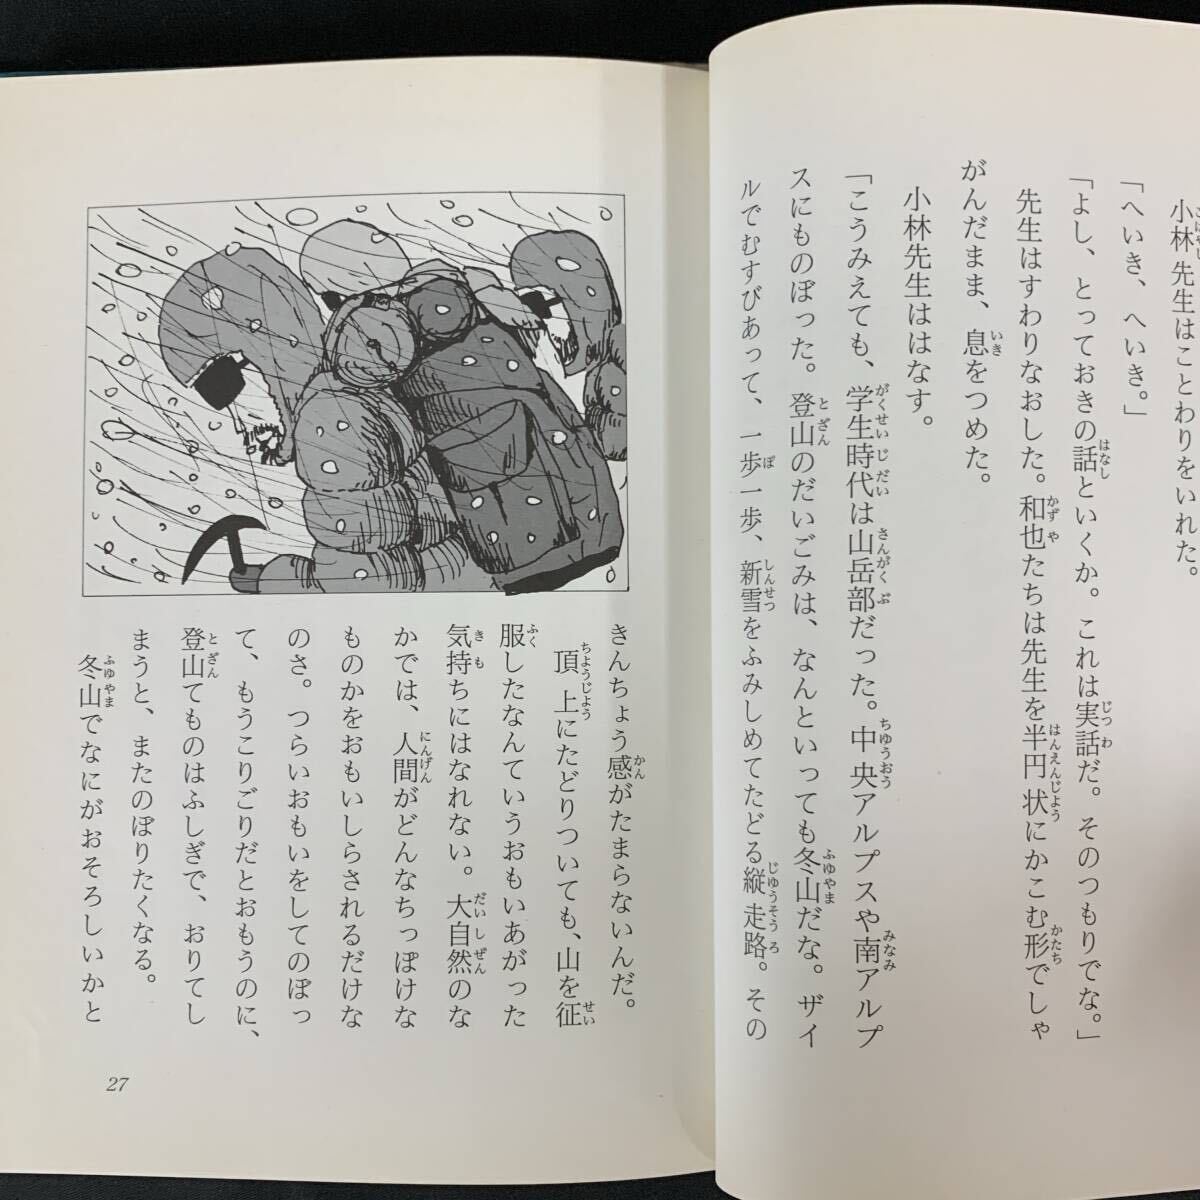 小林先生はことわりをいれた。
「へいき、へいき。」
「よし、とっておきの話といくか。これは実話だ。そのつもりでな。」
先生はすわりなおした。和也たちは先生を半円状にかこむ形でしゃ
がんだまま、息をつめた。
小林先生ははなす。
「こうみえても、学生時代は山岳部だった。中央アルプスや南アルプ
スにものぼった。登山のだいごみは、なんといっても冬山だな。ザイ
ルでむすびあって、一歩一歩、新雪をふみしめてたどる縦走路。その
きんちょう感がたまらないんだ。
頂上にたどりついても、山を征
服したなんていうおもいあがった
気持ちにはなれない。大自然のな
かでは、人間がどんなちっぽけな
ものかをおもいしらされるだけな
のさ。つらいおもいをしてのぼっ
て、もうこりごりだとおもうのに、
登山てものはふしぎで、おりてし
まうと、またのぼりたくなる。
冬山でなにがおそろしいかと
27